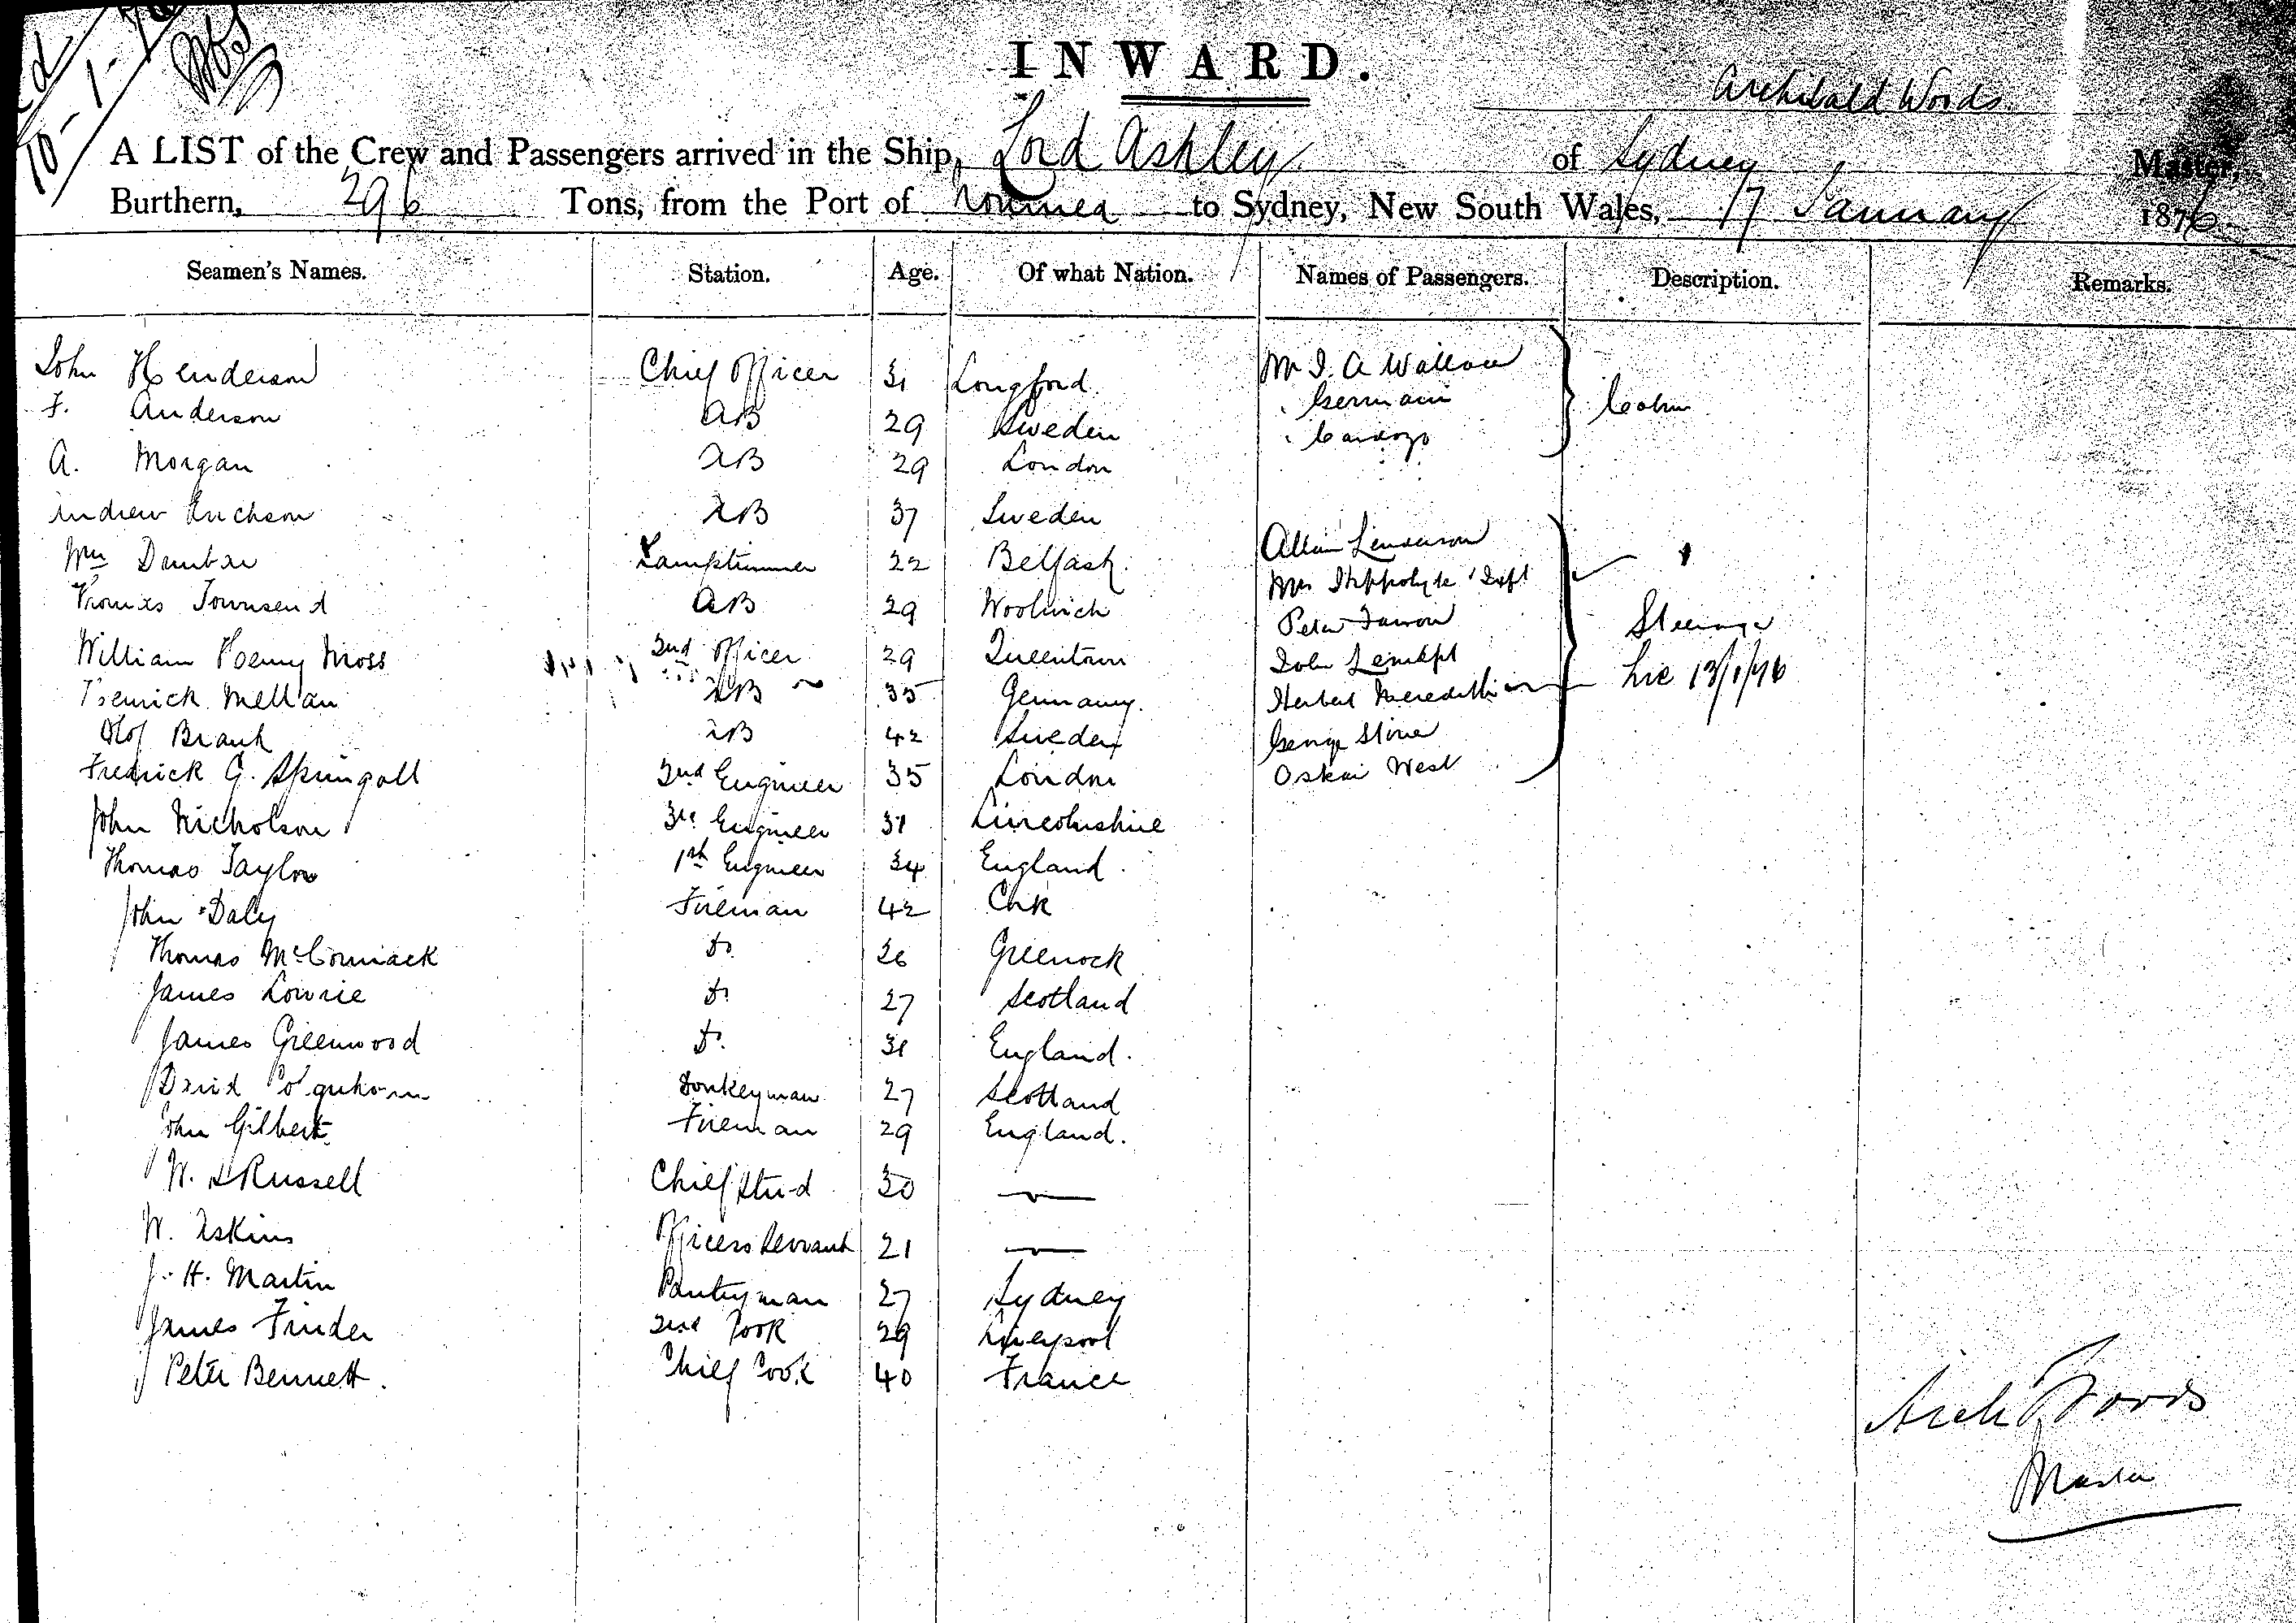 10-1-
INWARD.
Archibald Woods
A LIST of the Crew and Passengers arrived in the Ship, Lord Ashley of Sydney, Master,
Burthern, 296 Tons, from the Port of Noumea to Sydney, New South Wales, 17 January 1876
Seamen's Names. Station. Age. Of what Nation. Names of Passengers. Description. Remarks.
John Henderson Chief Officer 31 Longford Mr J. A Wallace
F. Anderson AB 29 Sweden Germain Cabin
A. Morgan AB 29 London
Andrew Erichson AB 37 Sweden
Wm Dunbar Lamptrimmer 22 Belfast. Allan
Thomas Townsend AB 29 Woolwich Mr Hippolyte
William Henry Moss 2nd Officer 29 Queentown Peter Steerage
Henrick Mellan AB 35 Germany. John
Olof Brant AB 42 Sweden Herbert Meredith 13/1/76
Fredrick G. Springall 2nd Engineer 35 London George Stone
John Nicholson 3rd Engineer 31 Lincolnshire Oskar West
Thomas Taylor 1st Engineer 34 England.
John Daly Fireman 42 Cork
Thomas McCormack Do. 26 Greenock
James Lowrie Do. 27 Scotland
James Greenwood Do. 31 England.
David Colquhoun Donkeyman 27 Scotland
John Gilbert Fireman 29 England.
W. Russell Chief Stu-d 30 —
W. Askins Officers Servant 21 —
J. H. Martin Pantryman 27 Sydney
James Finder 2nd Cook 29 Liverpool
Peter Bennett. Chief Cook 40 France
Arch Woods
Master